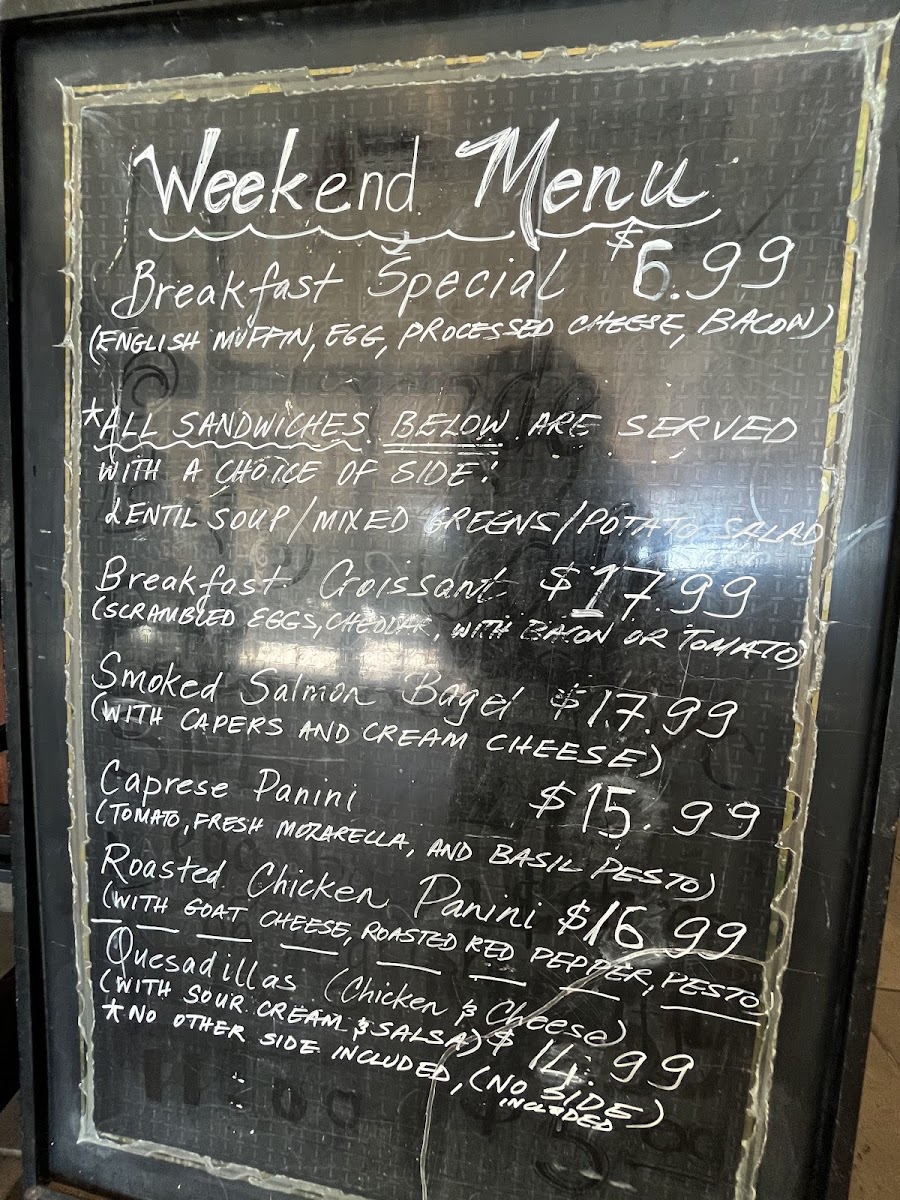 Weekend Menu
Breakfast Special $6.99
(ENGLISH MUFFIN, EGG, PROCESSED CHEESE, BACON)
*ALL SANDWICHES BELOW ARE SERVED
WITH A CHOICE OF SIDE:
LENTIL SOUP/MIXED GREENS/POTATO SALAD
Breakfast Croissant $17.99
(SCRAMBLED EGGS, CHEDDAR, WITH BACON OR TOMATO)
Smoked Salmon Bagel $17.99
(WITH CAPERS AND CREAM CHEESE)
Caprese Panini $15.99
(TOMATO, FRESH MOZARELLA, AND BASIL PESTO)
Roasted Chicken Panini $16.99
(WITH GOAT CHEESE, ROASTED RED PEPPER, PESTO)
Quesadillas (Chicken & Cheese)
(WITH SOUR CREAM & SALSA) $14.99
*NO OTHER SIDE INCLUDED, (NO SIDE)
INCLUDED